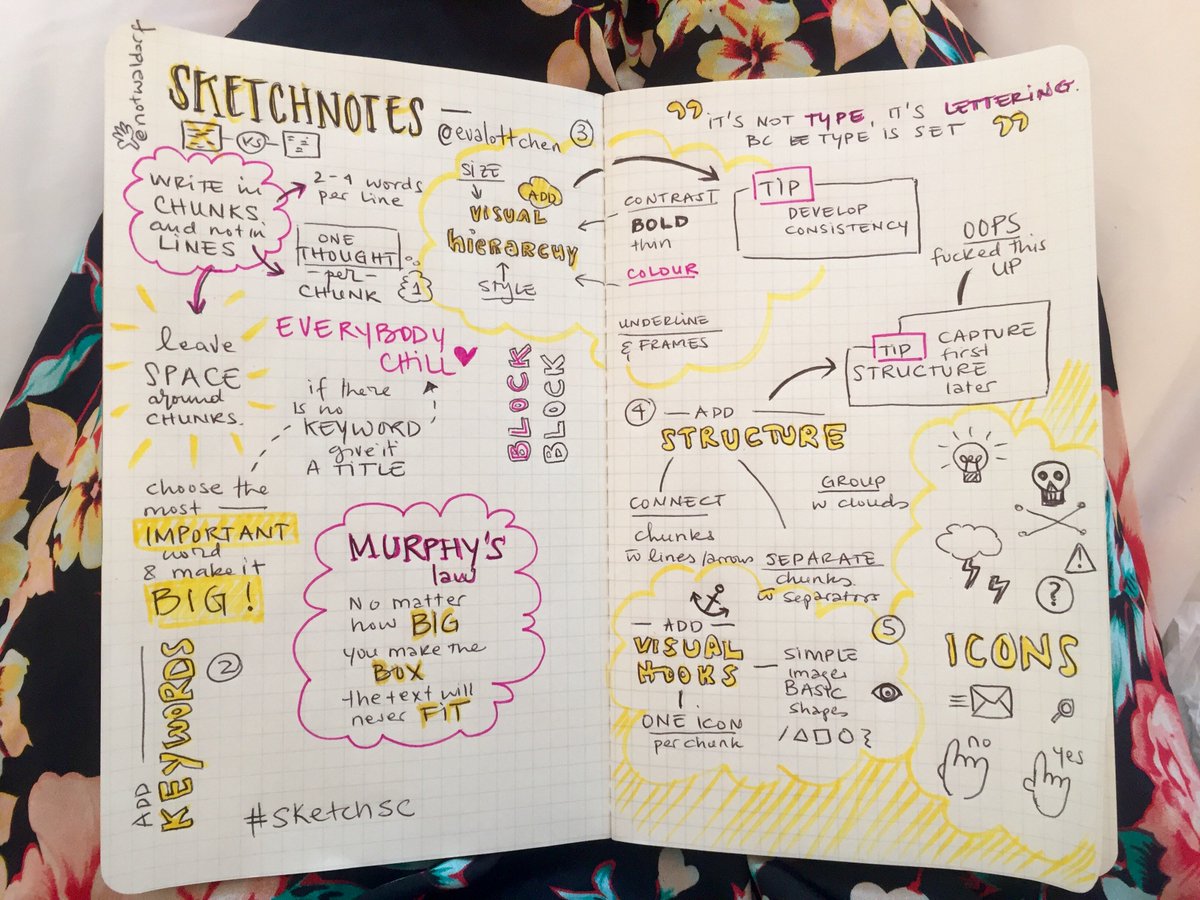 @notwaldorf
SKETCHNOTES —
@evalottchen
VS
WRITE in
CHUNKS
and not in
LINES
2-4 words
per line
ONE
THOUGHT
— per —
CHUNK
1
leave
SPACE
around
CHUNKS.
EVERYBODY
CHILL
if there
is no
KEYWORD
give it
A TITLE
choose the
most
IMPORTANT
word
& make it
BIG!
ADD
KEYWORDS
2
MURPHY'S
law
No matter
how BIG
you make the
BOX
the text will
never FIT
#sketchsc
BLOCK
BLOCK
3
SIZE
ADD
VISUAL
hierarchy
STYLE
CONTRAST
BOLD
thin
COLOUR
UNDERLINE
& FRAMES
" IT'S NOT TYPE, IT'S LETTERING.
BC TYPE IS SET "
TIP
DEVELOP
CONSISTENCY
OOPS
fucked this
UP
TIP
CAPTURE
first
STRUCTURE
later
4
— ADD —
STRUCTURE
CONNECT
chunks
w lines/arrows
GROUP
w clouds
SEPARATE
chunks
w separators
5
— ADD —
VISUAL
HOOKS
ONE ICON
per chunk
SIMPLE
images
BASIC
shapes
!
?
ICONS
no
yes